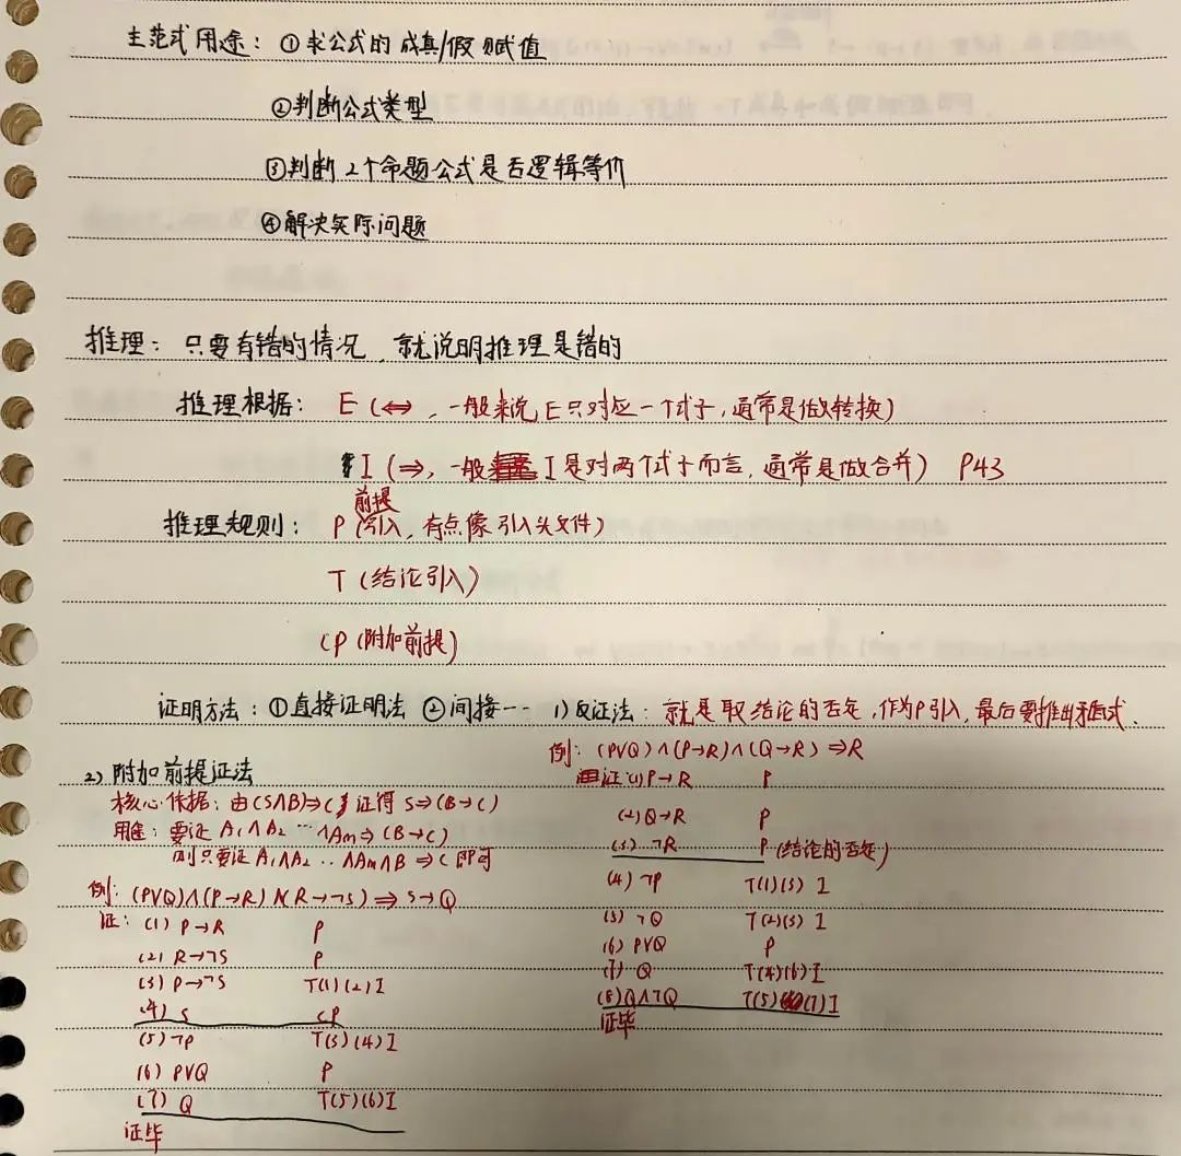 主范式用途：①求公式的成真/假赋值
②判断公式类型
③判断2个命题公式是否逻辑等价
④解决实际问题
推理：只要有错的情况，就说明推理是错的
推理根据：E（⇔，一般来说E只对应一个式子，通常是做转换）
I（⇒，一般I是对两个式子而言，通常是做合并） P43
推理规则：P（前提引入，有点像引入头文件）
T（结论引入）
CP（附加前提）
证明方法：①直接证明法 ②间接… 1)反证法：就是取结论的否定，作为P引入，最后要推出矛盾式.
例：(P∨Q)∧(P→R)∧(Q→R)⇒R
证(1)P→R P
(2)Q→R P
(3)¬R P(结论的否定)
(4)¬P T(1)(3) I
(5)¬Q T(2)(3) I
(6)P∨Q P
(7) Q T(4)(6)I
(8)Q∧¬Q T(5)(7)I
证毕
2)附加前提证法
核心依据：由(S∧B)⇒C 证得 S⇒(B→C)
用途：要证 A₁∧A₂…∧Am⇒(B→C)
则只要证A₁∧A₂…∧Am∧B⇒C即可
例：(P∨Q)∧(P→R)∧(R→¬S)⇒S→Q
证：(1) P→R P
(2) R→¬S P
(3) P→¬S T(1)(2)I
(4) S CP
(5)¬P T(3)(4)I
(6) P∨Q P
(7) Q T(5)(6)I
证毕